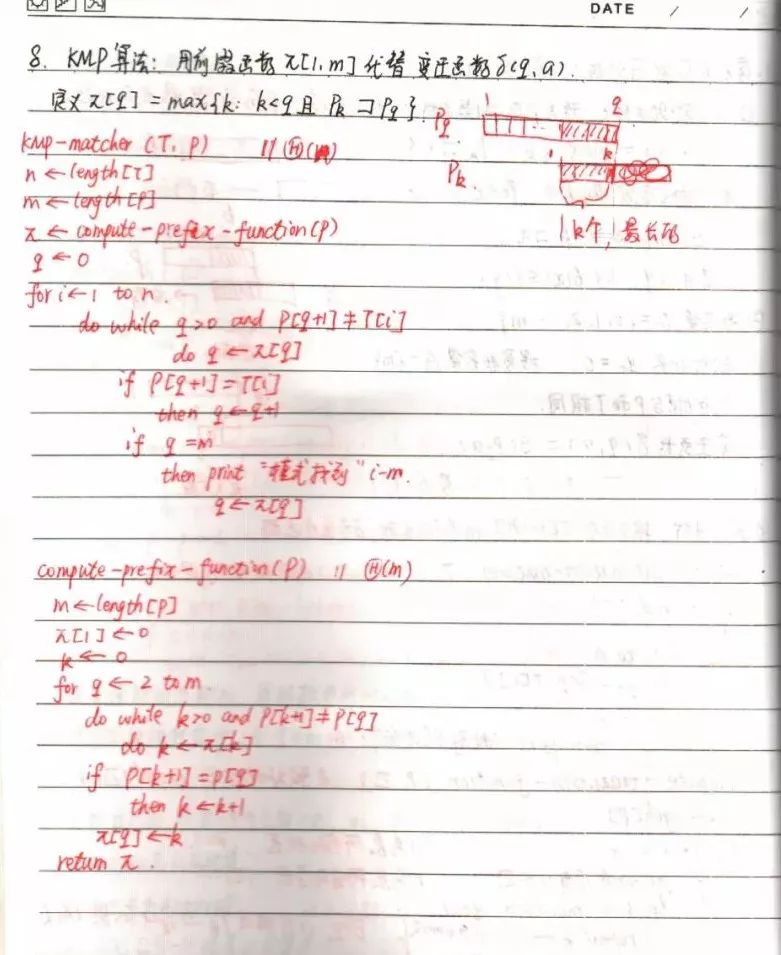 DATE / /
8. KMP算法: 用前缀函数 π[1,m] 代替 变迁函数 δ(q,a).
定义 π[q] = max{k: k<q 且 Pk ⊐ Pq}.
Pq 1 q
Pk k
k个, 最长的
KMP-matcher (T, P) // Θ(n)
n ← length[T]
m ← length[P]
π ← compute-prefix-function(P)
q ← 0
for i ← 1 to n.
do while q>0 and P[q+1] ≠ T[i]
do q ← π[q]
if P[q+1] = T[i]
then q ← q+1
if q = m
then print "模式找到" i-m.
q ← π[q]
compute-prefix-function(P) // Θ(m)
m ← length[P]
π[1] ← 0
k ← 0
for q ← 2 to m.
do while k>0 and P[k+1] ≠ P[q]
do k ← π[k]
if P[k+1] = P[q]
then k ← k+1
π[q] ← k
return π.